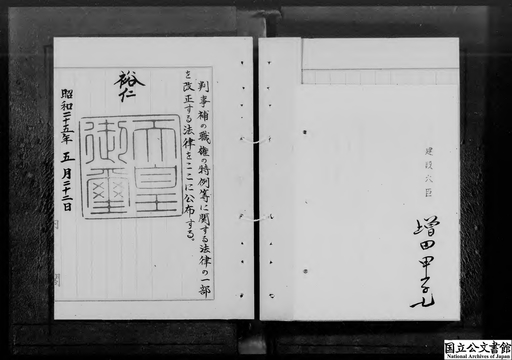 建設大臣
増田甲子七
判事補の職権の特例等に関する法律の一部
を改正する法律をここに公布する。
裕仁
天皇御璽
昭和二十五年五月二十二日
国立公文書館
National Archives of Japan